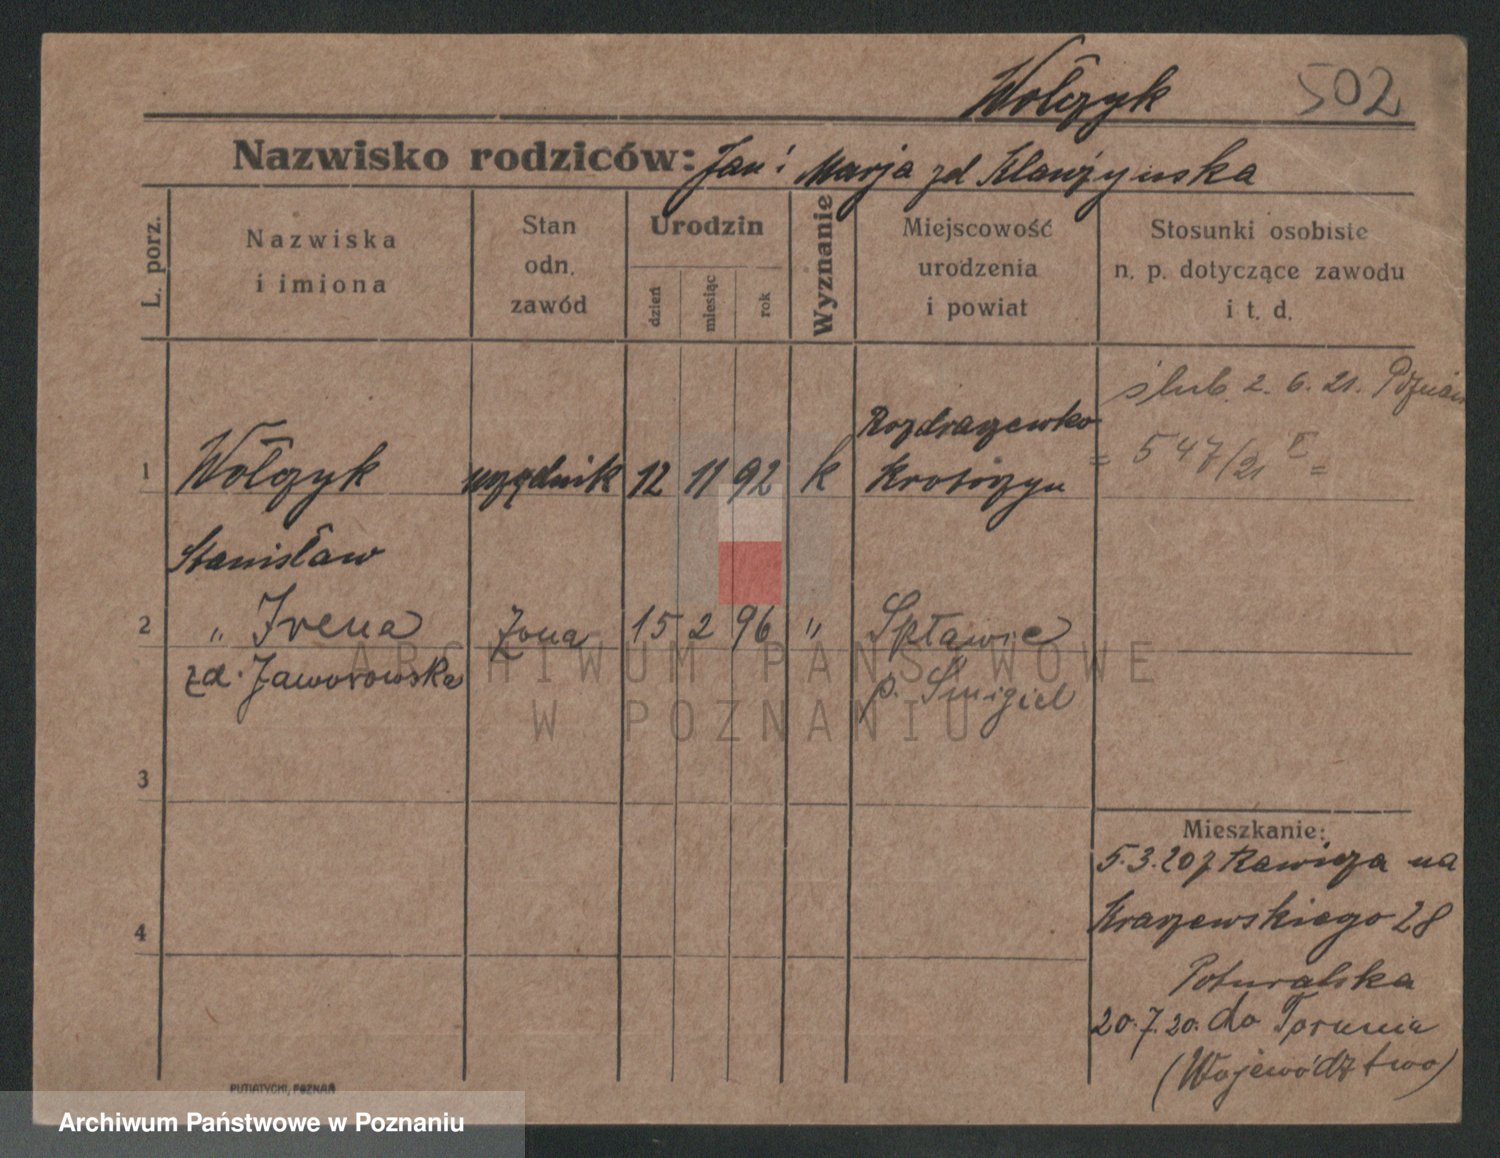 Wołczyk 502
Nazwisko rodziców: Jan i Marja zd
L. porz.
Nazwiska i imiona
Stan odn. zawód
Urodzin
dzień miesiąc rok
Wyznanie
Miejscowość urodzenia i powiat
Stosunki osobiste n. p. dotyczące zawodu i t. d.
ślub. 2. 6. 21. Poznań
= 547/21 =
Rozdrażewko
1 Wołczyk urzędnik 12 11 92 k Krotoszyn
Stanisław
2 „ Irena żona 15 2 96 „ Spławie
zd. Jaworowska p. Śmigiel
3
4
Mieszkanie:
5.3.20 z Rawicza na
Kraszewskiego 28
Poturalska
20.7.20. do Torunia
(Województwo)
PUTIATYCKI, POZNAŃ
ARCHIWUM PAŃSTWOWE
W POZNANIU
Archiwum Państwowe w Poznaniu